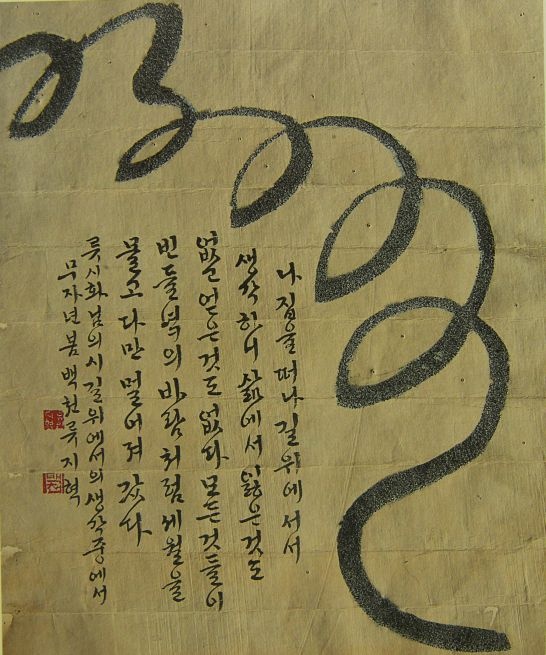 나 집을 떠나 길 위에 서서
생각하니 삶에서 잃은것도
없고 얻은것도 없다 모든것들이
빈들녘의 바람처럼 세월을
몰고 다만 멀어져 갔다
류시화님의 시 길 위에서의 생각 중에서
무자년 봄 백천 류지혁